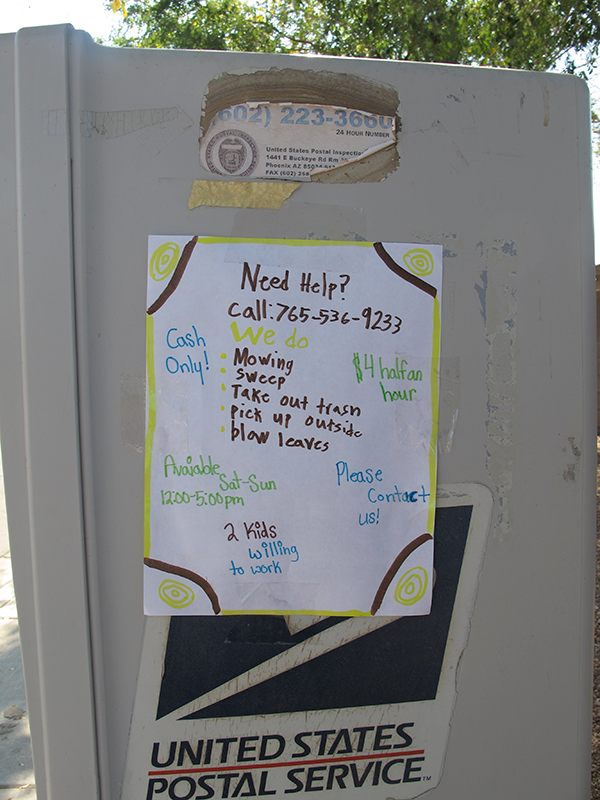 602) 223-3660
24 HOUR NUMBER
United States Postal Inspection
1441 E Buckeye Rd Rm
Phoenix AZ
FAX (602)
Need Help?
Call: 765-536-9233
We do
Cash
Only!
Mowing
Sweep
Take out trash
pick up outside
blow leaves
$4 half an
hour
Avaiable
Sat-Sun
12:00-5:00pm
Please
Contact
us!
2 Kids
willing
to work
UNITED STATES
POSTAL SERVICE™